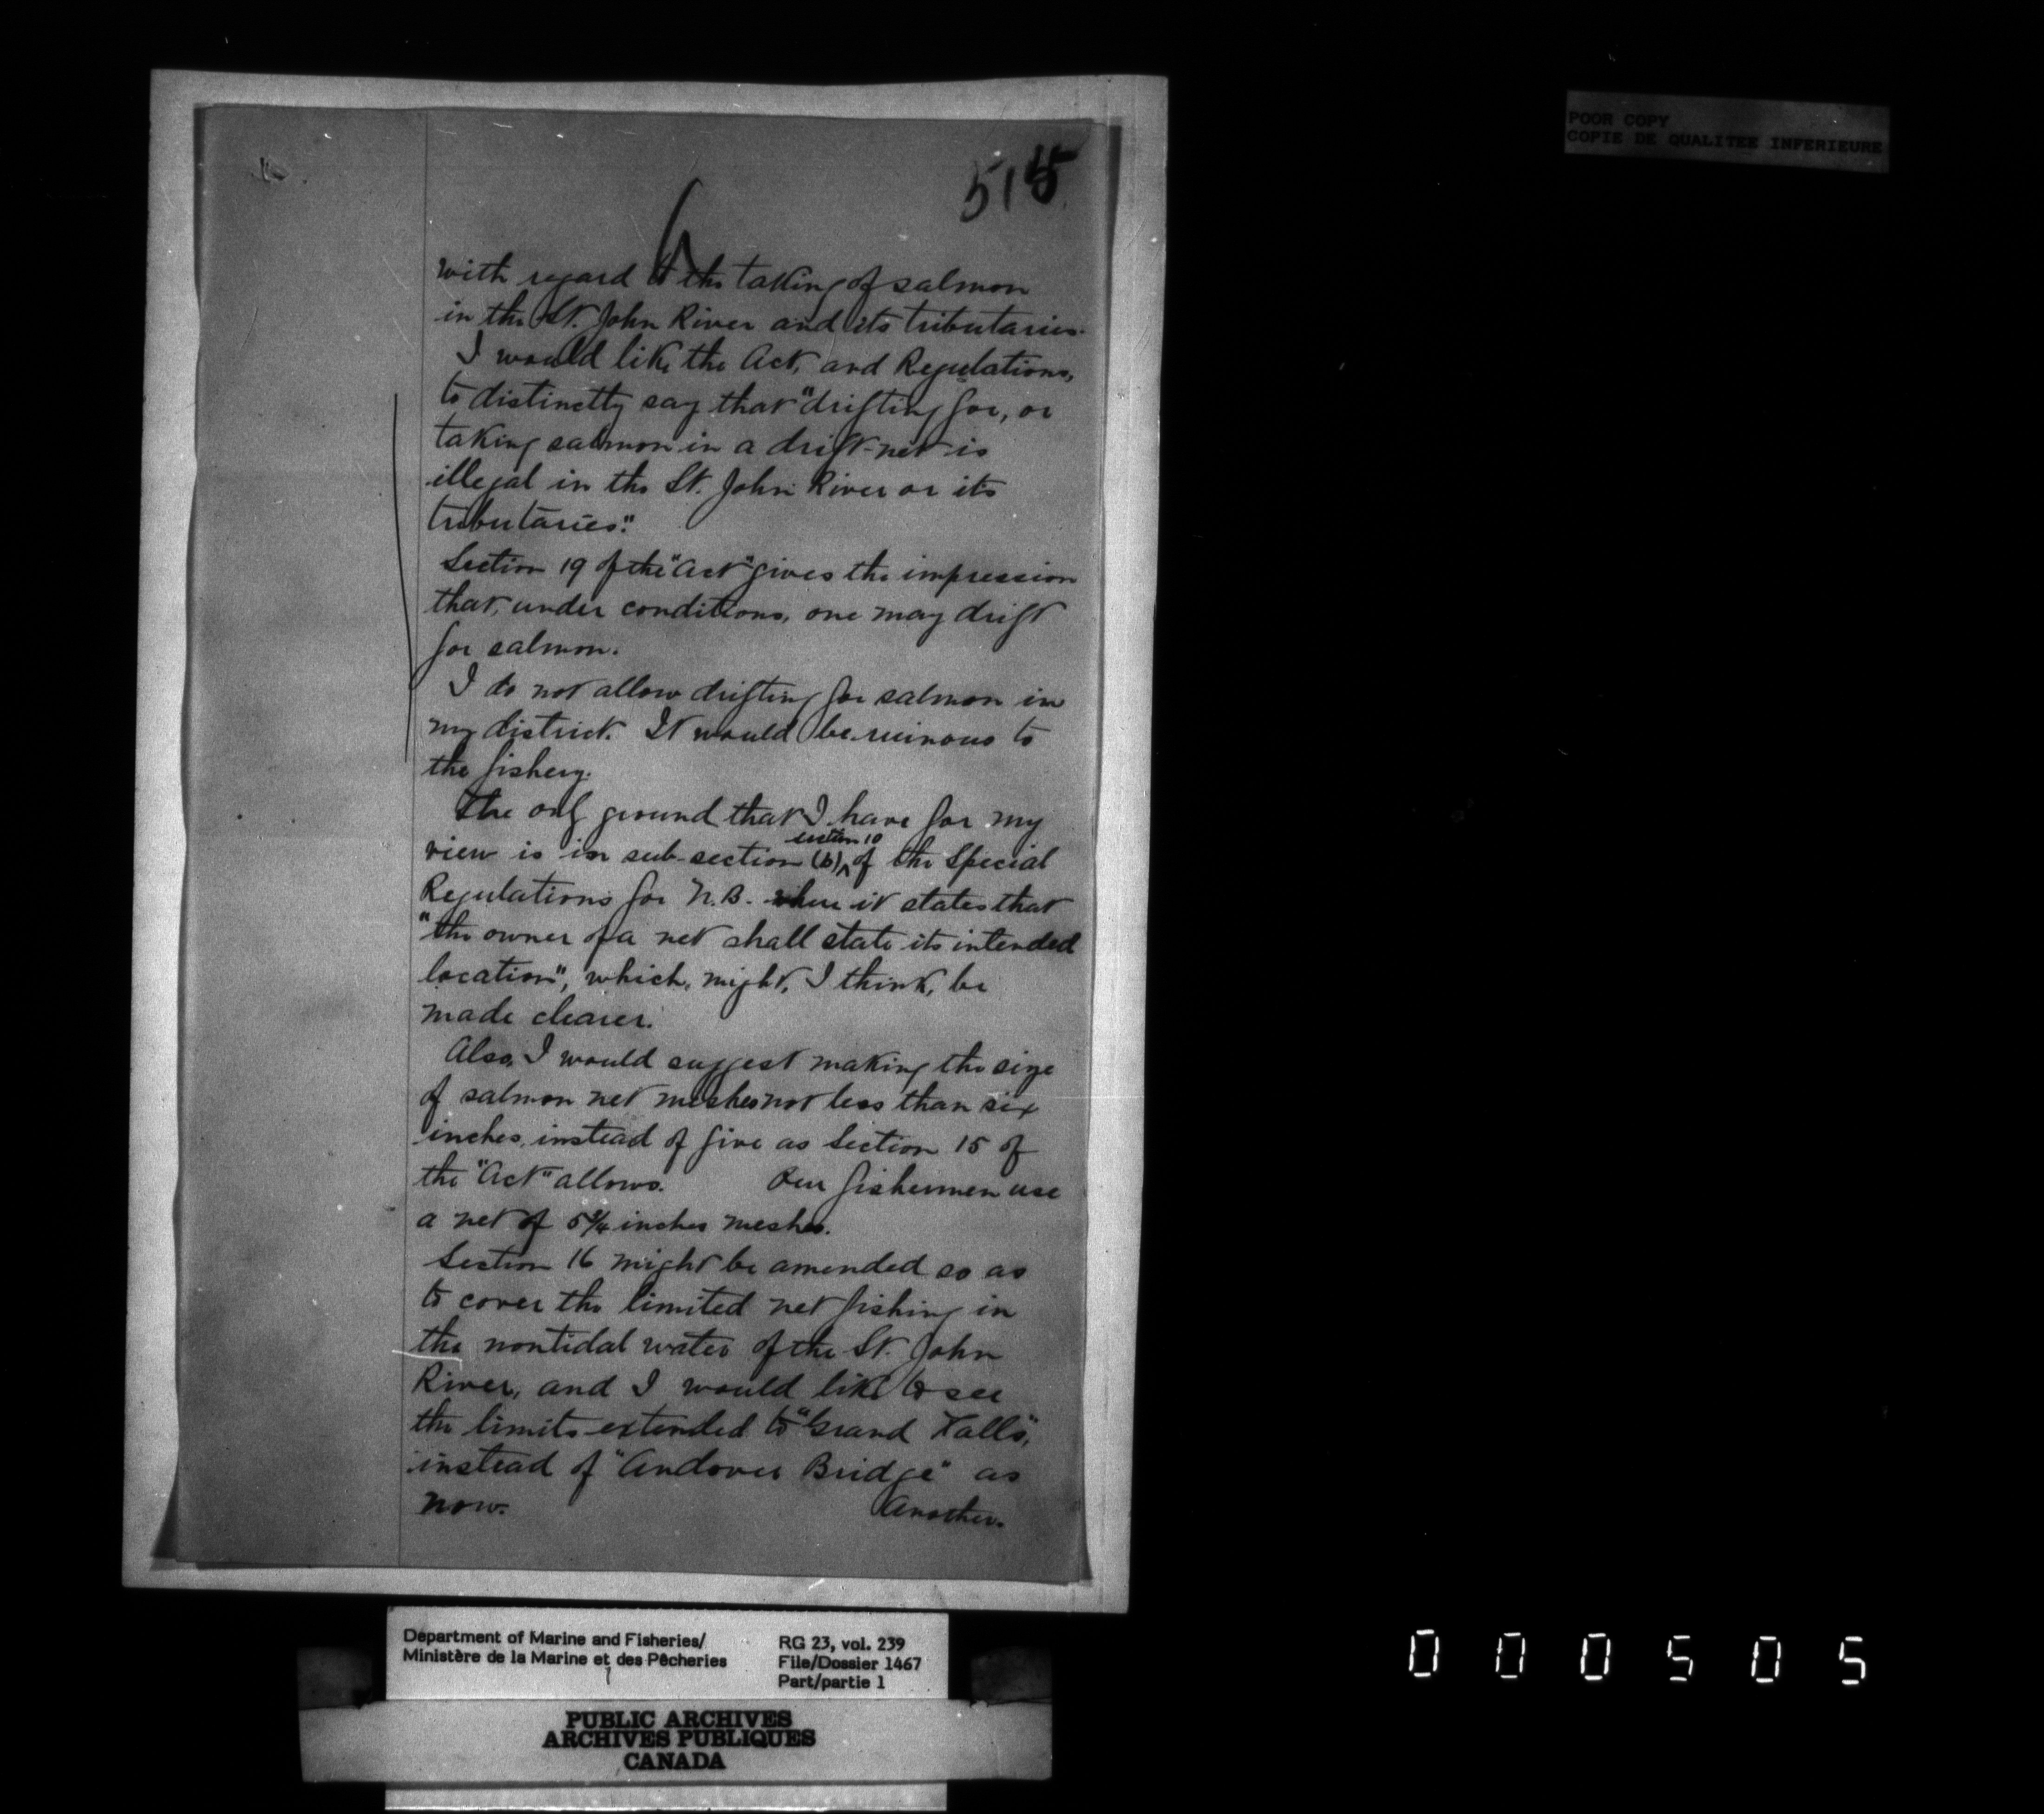 POOR COPY
COPIE DE QUALITEE INFERIEURE
515
with regard to the taking of salmon
in the St. John River and its tributaries.
I would like the Act, and Regulations,
to distinctly say that "drifting for, or
taking salmon in a drift-net is
illegal in the St. John River or its
tributaries."
Section 19 of the "Act" gives the impression
that, under conditions, one may drift
for salmon.
I do not allow drifting for salmon in
my district. It would be ruinous to
the fishery.
The only ground that I have for my
section 10
view is in sub-section (b) ^ of the Special
Regulations for N.B. where it states that
"the owner of a net shall state its intended
location", which, might, I think, be
made clearer.
Also, I would suggest making the size
of salmon net meshes not less than six
inches, instead of five as Section 15 of
the "Act" allows. Our fishermen use
a net of 5 3/4 inches meshes.
Section 16 might be amended so as
to cover the limited net fishing in
the nontidal water of the St. John
River, and I would like to see
the limits extended to "Grand Falls",
instead of "Andover Bridge" as
now. Another.
Department of Marine and Fisheries/
Ministère de la Marine et des Pêcheries
RG 23, vol. 239
File/Dossier 1467
Part/partie 1
PUBLIC ARCHIVES
ARCHIVES PUBLIQUES
CANADA
000505